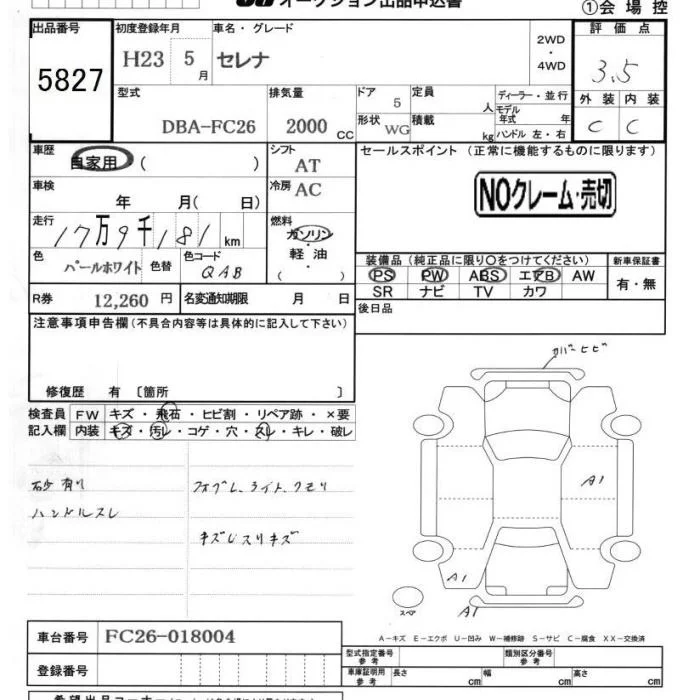 オークション出品申込書
①会場控
出品番号 初度登録年月 車名・グレード 評価点
5827 H23 5月 セレナ 2WD・4WD 3.5
型式 排気量 ドア 定員 ディーラー・並行 外装 内装
DBA-FC26 2000cc 5 人 モデル年式 年 C C
形状 WG 積載 kg ハンドル 左・右
車歴 シフト セールスポイント (正常に機能するものに限ります)
自家用 ( ) AT
車検 冷房 AC
年 月( 日)
NOクレーム・売切
走行 燃料
17万9千181km ガソリン
軽油
( )
色 色替 色コード
パールホワイト QAB
装備品 (純正品に限り〇をつけてください) 新車保証書
PS PW ABS エアB AW 有・無
SR ナビ TV カワ
R券 12,260円 名変通知期限 月 日
後日品
注意事項申告欄(不具合内容等は具体的に記入して下さい)
修復歴 有 〔箇所 〕
カバーヒビ
検査員 FW キズ・飛石・ヒビ割・リペア跡・×要
記入欄 内装 キズ・汚レ・コゲ・穴・スレ・キレ・破レ
砂有リ フォグL、ライト、クモリ
ハンドルスレ
キズLスリキズ
A1
A1
スペア
A1
車台番号 FC26-018004
A-キズ E-エクボ U-凹み W-補修跡 S-サビ C-腐食 XX-交換済
型式指定番号 参考 類別区分番号 参考
登録番号
車庫証明用 参考 長さ cm 幅 cm 高さ cm